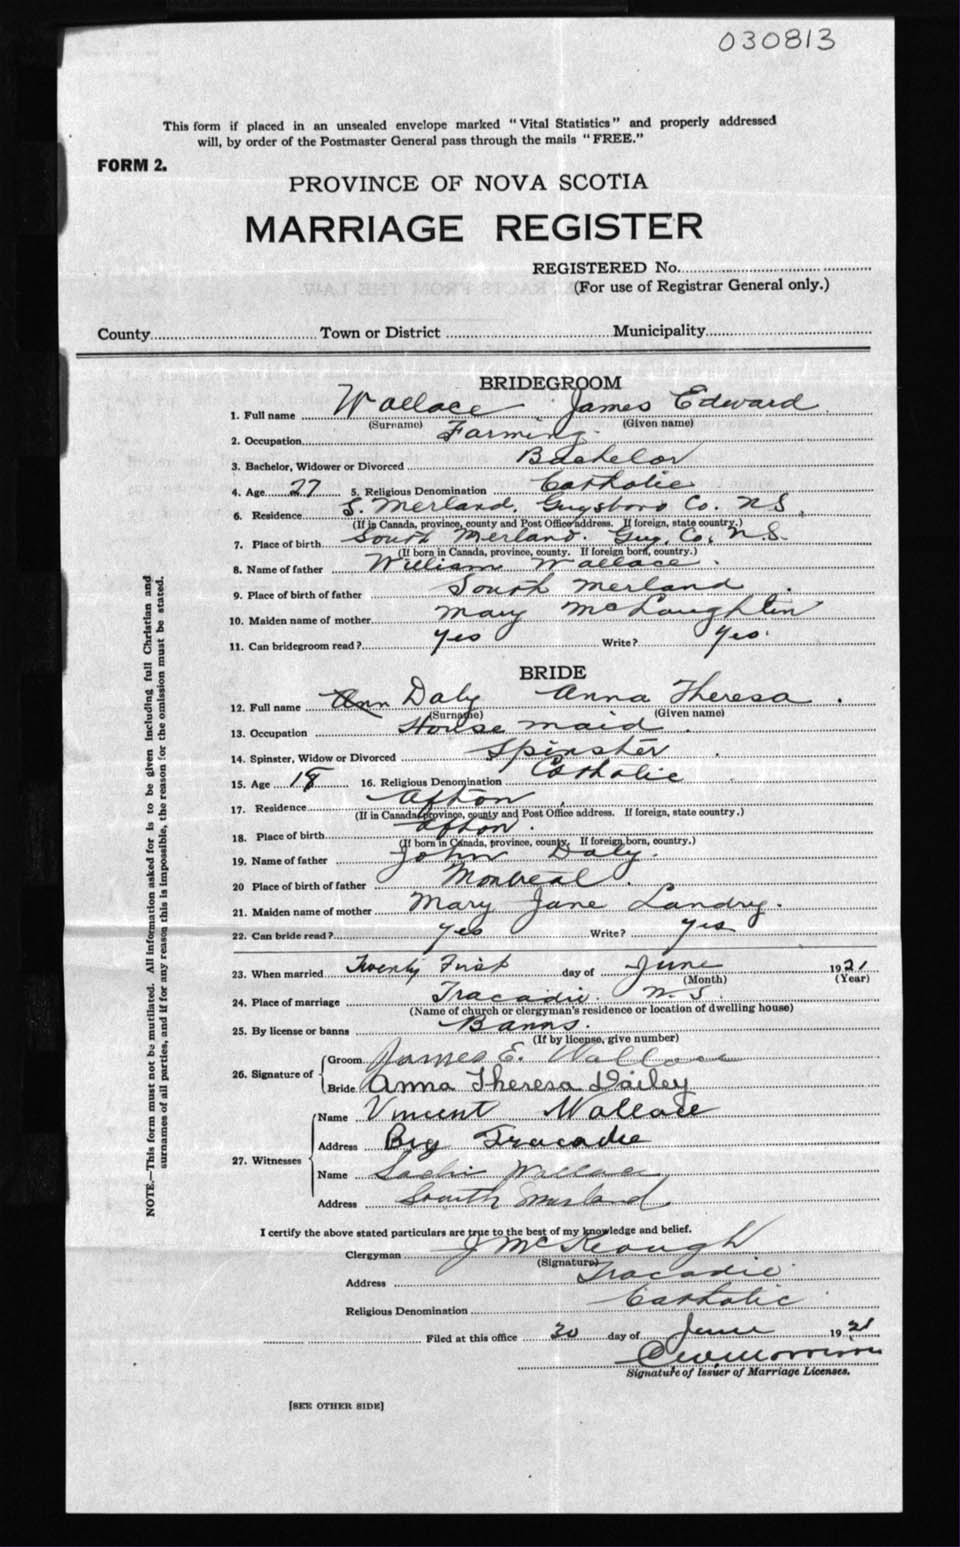 030813
This form if placed in an unsealed envelope marked "Vital Statistics" and properly addressed
will, by order of the Postmaster General pass through the mails "FREE."
FORM 2.
PROVINCE OF NOVA SCOTIA
MARRIAGE REGISTER
REGISTERED No.
(For use of Registrar General only.)
County Town or District Municipality
BRIDEGROOM
1. Full name Wallace James Edward
(Surname) (Given name)
2. Occupation Farming.
3. Bachelor, Widower or Divorced Bachelor
4. Age 27 5. Religious Denomination Catholic
6. Residence S. Merland, Guysboro Co. N.S.
(If in Canada, province, county and Post Office address. If foreign, state country.)
7. Place of birth South Merland. Guy. Co. N.S.
(If born in Canada, province, county. If foreign born, country.)
8. Name of father William Wallace.
9. Place of birth of father South Merland.
10. Maiden name of mother Mary McLaughlin
11. Can bridegroom read? yes Write? yes.
BRIDE
12. Full name Ann Daly Anna Theresa.
(Surname) (Given name)
13. Occupation House maid.
14. Spinster, Widow or Divorced Spinster.
15. Age 18 16. Religious Denomination Catholic
17. Residence Afton
(If in Canada, province, county and Post Office address. If foreign, state country.)
18. Place of birth Afton.
(If born in Canada, province, county. If foreign born, country.)
19. Name of father John Daly.
20 Place of birth of father Montreal.
21. Maiden name of mother Mary Jane Landry.
22. Can bride read? yes Write? yes
23. When married Twenty First day of June 1921
(Month) (Year)
24. Place of marriage Tracadie. N.S.
(Name of church or clergyman's residence or location of dwelling house)
25. By license or banns Banns.
(If by license, give number)
26. Signature of
Groom James E. Wallace
Bride Anna Theresa Dailey
27. Witnesses
Name Vincent Wallace
Address Big Tracadie
Name Wallace
Address South Merland
I certify the above stated particulars are true to the best of my knowledge and belief.
Clergyman J McKeough
(Signature)
Address Tracadie.
Religious Denomination Catholic.
Filed at this office 30 day of June 1921
Signature of Issuer of Marriage Licenses.
[SEE OTHER SIDE]
NOTE.—This form must not be mutilated. All information asked for is to be given including full Christian and
surnames of all parties, and if for any reason this is impossible, the reason for the omission must be stated.